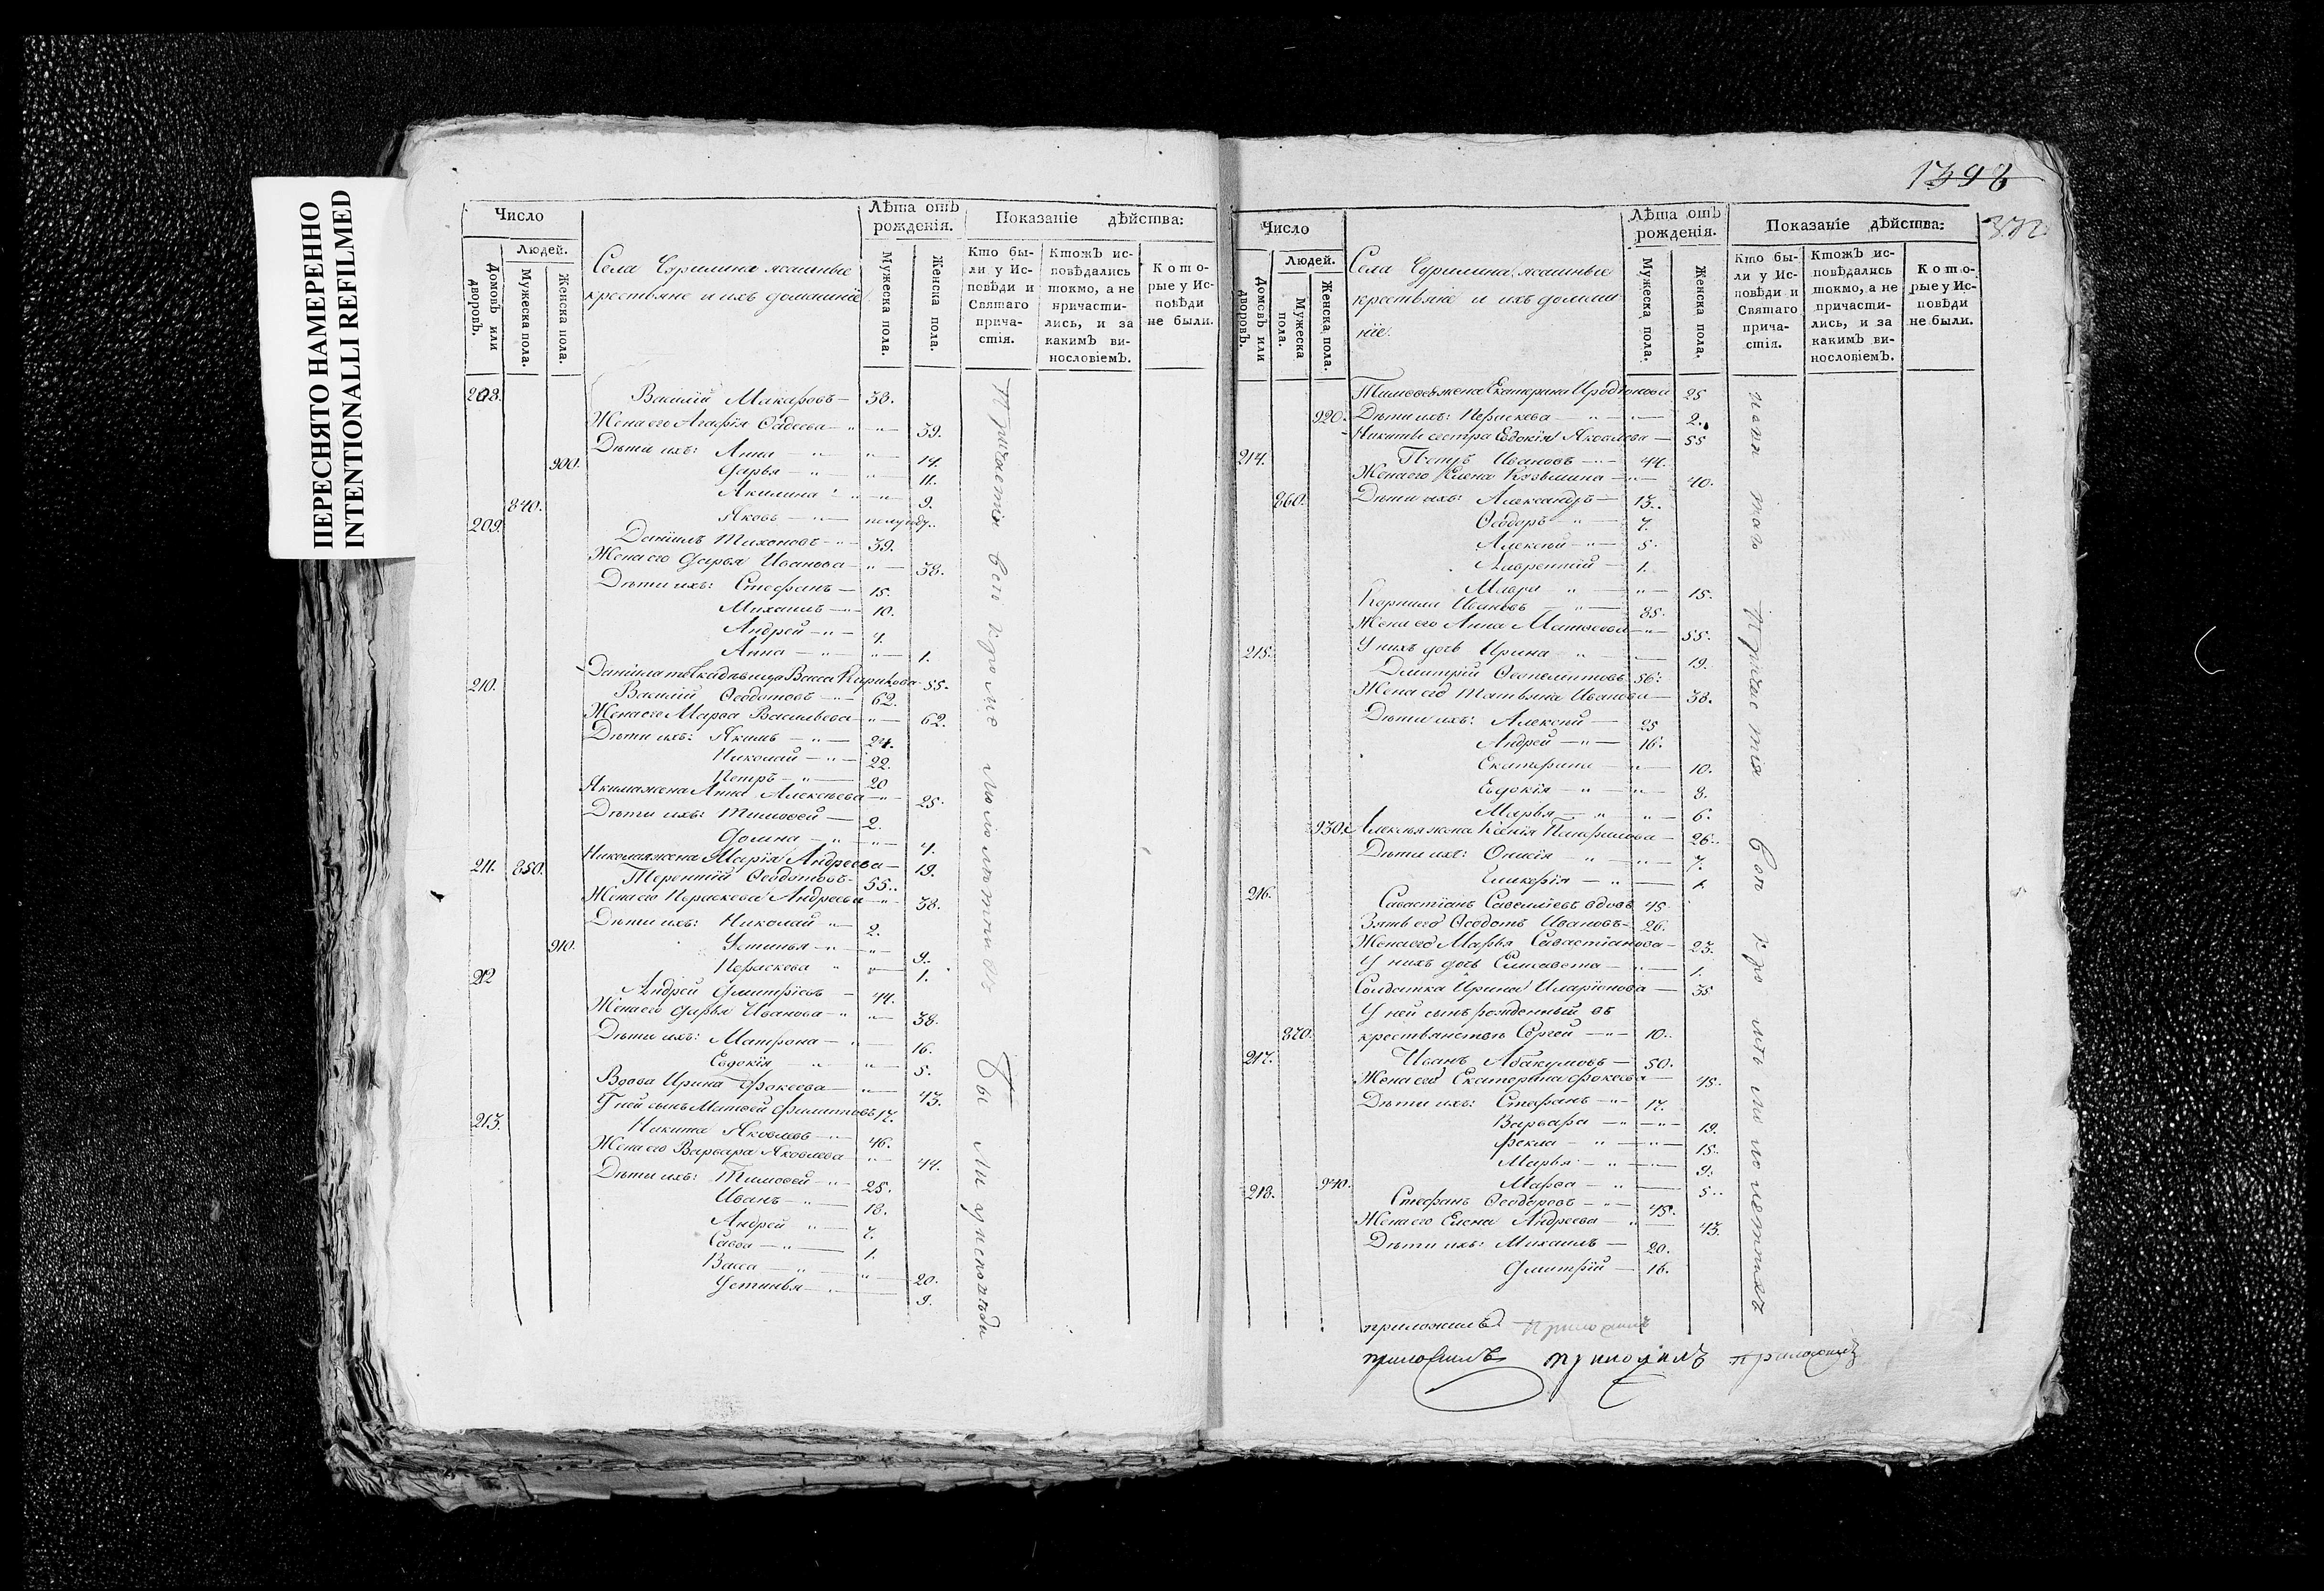 ПЕРЕСНЯТО НАМЕРЕННО
INTENTIONALLI REFILMED
Число
Людей.
Домовъ или дворовъ.
Мужеска пола.
Женска пола.
Села Чурилина ясашные
крестьяне и ихъ домашніе
Лѣта отъ рожденія.
Мужеска пола.
Женска пола.
Показаніе дѣйства:
Кто были у Исповѣди и Святаго причастія.
Ктожъ исповѣдались токмо, а не причастились, и за какимъ винословіемъ.
Которые у Исповѣди не были.
208. Василій Макаровъ — 38.
Жена его Агафія Фадеева — 39.
Дѣти ихъ: Анна — 14.
900. Дарья — 11.
Акилина — 9.
840. Яковъ — полугоду.
209. Даніилъ Тихоновъ — 39.
Жена его Дарья Иванова — 38.
Дѣти ихъ: Стефанъ — 15.
Михаилъ — 10.
Андрей — 4.
Анна — 1.
Даніила Васса Кирикова 55.
210. Василій Ѳеодотовъ — 62.
Жена его Марѳа Васильева — 62.
Дѣти ихъ: Якимъ — 24.
Николай — 22.
Петръ — 20
Якима жена Анна Алексѣева — 25.
Дѣти ихъ: Тимоѳей — 2.
Домна — 4.
Николая жена Марія Андреева — 19.
211. 850. Терентій Ѳеодотовъ 55.
Жена его Параскева Андреева — 38.
Дѣти ихъ: Николай — 2.
910. Устинья — 9.
Параскева — 1.
212 Андрей Дмитріевъ — 44.
Жена его Дарья Иванова — 38.
Дѣти ихъ: Матрона — 16.
Евдокія — 5.
Вдова Ирина Фокеева — 43.
У ней сынъ Матѳей Филиповъ 17.
213. Никита Яковлевъ — 46.
Жена его Варвара Яковлева — 44.
Дѣти ихъ: Тимоѳей — 25.
Иванъ — 18.
Андрей — 7.
Савва — 1.
Васса — 20.
Устинья — 9.
Причастія всѣ кромѣ малолѣтныхъ Были у исповѣди
1398
372
Число
Людей.
Домовъ или дворовъ.
Мужеска пола.
Женска пола.
Села Чурилина, ясашные
крестьяне и ихъ домаш
ніе.
Лѣта отъ рожденія.
Мужеска пола.
Женска пола.
Показаніе дѣйства:
Кто были у Исповѣди и Святаго причастія.
Ктожъ исповѣдались токмо, а не причастились, и за какимъ винословіемъ.
Которые у Исповѣди не были.
Тимоѳея жена Екатерина Иродіонова 25
920. Дѣти ихъ: Параскева — 2.
Никиты сестра Евдокія Яковлева — 55
214. Петръ Ивановъ — 44.
Жена его Елена Козьмина — 40.
860. Дѣти ихъ: Александръ — 13.
Ѳеодоръ — 7.
Алексѣй — 5.
Лаврентій — 1.
Мавра — 15.
Корнила Ивановъ — 35.
Жена его Анна Матѳеева — 55.
215. У нихъ дочь Ирина — 19.
Димитрій Ѳеопемптовъ 56.
Жена его Татьяна Иванова — 38.
Дѣти ихъ: Алексѣй — 25
Андрей — 16.
Екатерина — 10.
Евдокія — 8.
Марья — 6.
930. Алексѣя жена Ксенія Панфилова — 26.
Дѣти ихъ: Онисія — 7.
Гликерія — 1.
216. Савастіанъ Савелліевъ вдовъ 45
Зять его Ѳеодотъ Ивановъ — 26.
Жена его Марья Савастіанова — 23.
У нихъ дочь Елисавета — 1.
Солдатка Ирина Иларіонова — 35
У ней сынъ рожденный въ
870. крестьянствѣ Сергей — 10.
217. Иванъ Абакумовъ — 50.
Жена его Екатерина Фокеева — 45.
Дѣти ихъ: Стефанъ — 17.
Варвара — 19.
Фекла — 15.
Марья — 9.
940. Марѳа — 5.
218. Стефанъ Ѳеодоровъ — 45.
Жена его Елена Андреева — 43.
Дѣти ихъ: Михаилъ — 20.
Дмитрій — 16.
Причастія всѣ кромѣ малолетныхъ
приложилъ приложилъ
приложилъ приложилъ приложилъ